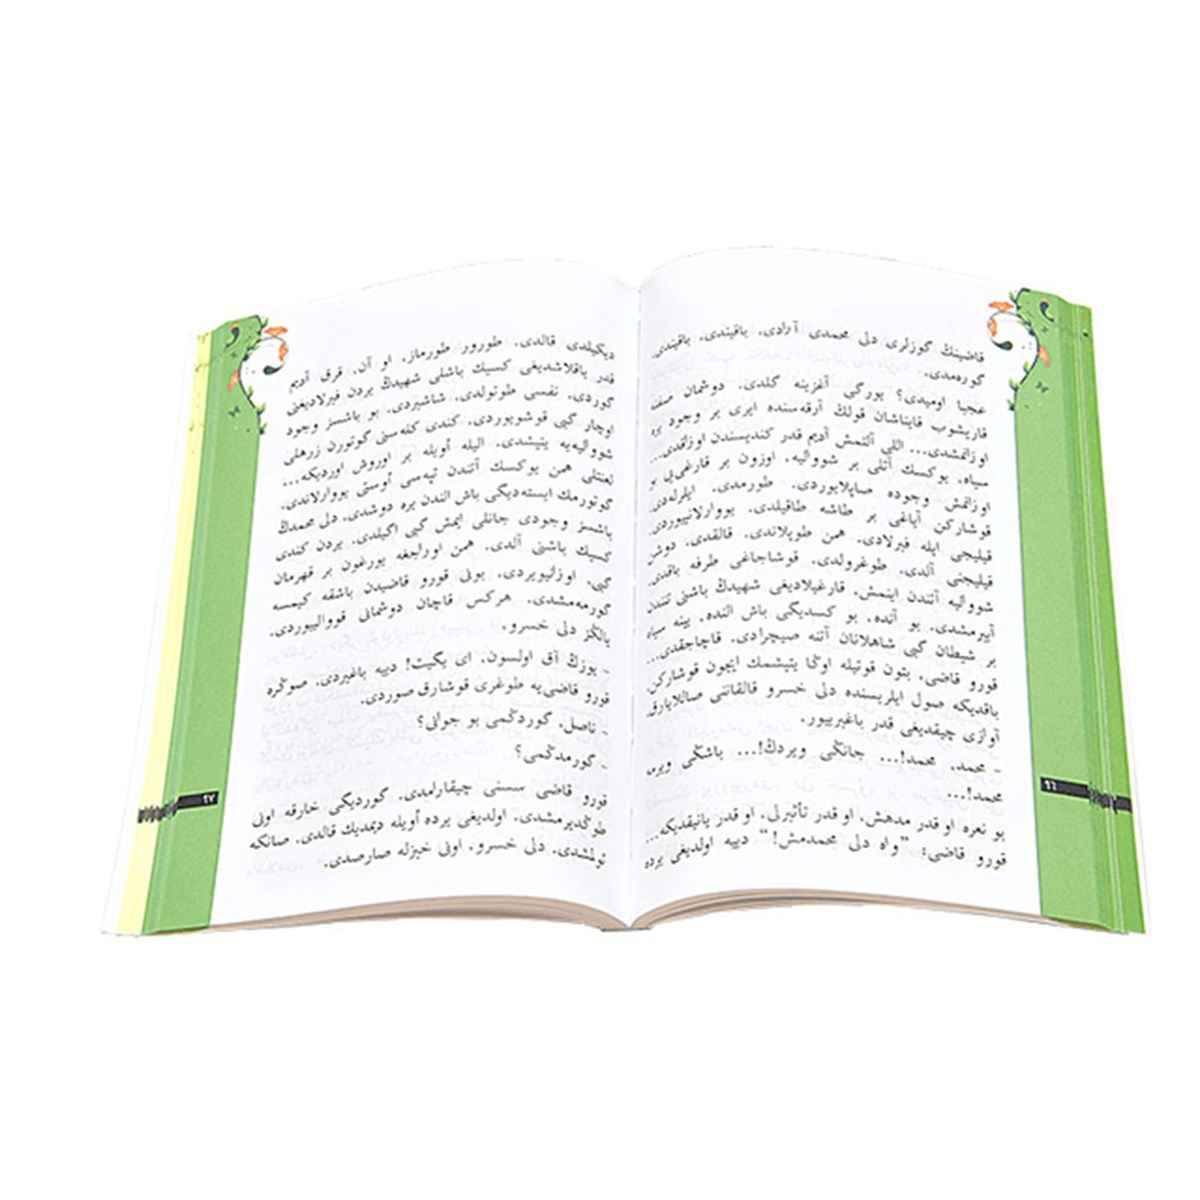 قاضینڭ گوزلری دلی محمدی آرادی. باقیندی، باقیندی.
گوره‌مدی.
عجبا اومیدی؟ یورگی آغزینه گلدی. دوشمان صفنه
قاریشوب قایناشان قولڭ آرقه‌سنده ایری بر وجود یره
اوزانمشدی... اللی آلتمش آدیم قدر کندیسندن اوزاقدی...
سیاه، یوکسك آتلی بر شووالیه، اوزون بر قارغی‌یی بو
اوزانمش وجوده صاپلایوردی. طورمدی. ایلرله‌دی.
قوشارکن آیاغی بر طاشه طاقیلدی. یووارلانیوردی.
قیلیجی ایله فیرلادی. همن طوپلاندی. قالقدی. دوشن
قیلیجنی آلدی. طوغرولدی. قوشاجاغی طرفه باقدی.
شووالیه آتندن اینمش، قارغیلادیغی شهیدڭ باشنی تنندن
آییرمشدی. بو آنده، بو کسدیگی باش النده، ینه سیاه
بر شیطان گبی شاهلانان آتنه صیچرادی. قاچاجقدی...
قورو قاضی، بتون قوتیله اوڭا یتیشمك ایچون قوشارکن،
باقدیکه صول ایلریسنده دلی خسرو قالقاننی صاللایارق
آوازی چیقدیغی قدر باغیرییور.
ـ محمد، محمد!... جانڭی ویردڭ!... باشڭی ویرمه
محمد!...
بو نعره او قدر مدهش، او قدر تأثیرلی، او قدر یانیقدیکه...
قورو قاضی: "واه دلی محمدمش!" دییه اولدیغی یرده
٤٦
دیکیلدی قالدی. طورور طورماز، او آن، قرق آدیم
قدر یاقلاشدیغی کسیك باشلی شهیدڭ یردن فیرلادیغنی
گوردی. نفسی طوتولدی. شاشیردی. بو باشسز وجود
اوچار گبی قوشویوردی. کندی کله‌سنی گوتورن زرهلی
شووالیه‌یه یتیشدی. الیله اویله بر اوروش اوردیکه...
لعنتلی همن یوکسك آتندن تپه‌سی اوستی یووارلاندی.
گوتورمك ایسته‌دیگی باش الندن یره دوشدی. دلی محمدڭ
باشسز وجودی جانلی ایمش گبی اگیلدی. یردن کندی
کسیك باشنی آلدی. همن اوراجغه یورغون بر قهرمان
گبی، اوزانیویردی. بونی قورو قاضیدن باشقه کیمسه
گورمه‌مشدی. هرکس قاچان دوشمانی قووالییوردی.
یالڭز دلی خسرو.
ـ یوزڭ آق اولسون، ای یگیت! دییه باغیردی. صوڭره
قورو قاضی‌یه طوغری قوشارق صوردی.
ـ ناصل، گوردڭمی بو جوانی؟
ـ گورمدڭمی؟
قورو قاضی سسنی چیقارامدی. گوردیگی خارقه اونی
طوڭدیرمشدی. اولدیغی یرده اویله دیمدیك قالدی. صانکه
ئولمشدی. دلی خسرو، اونی خیزله صارصدی.
٤٧